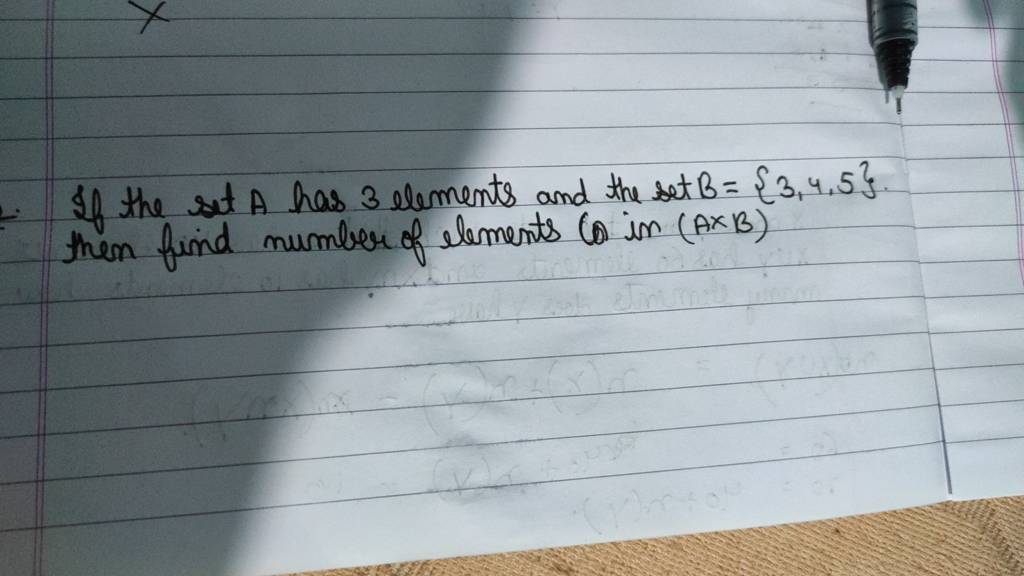 X
If the set A has 3 elements and the set B = {3,4,5}.
then find number of elements in (A×B)